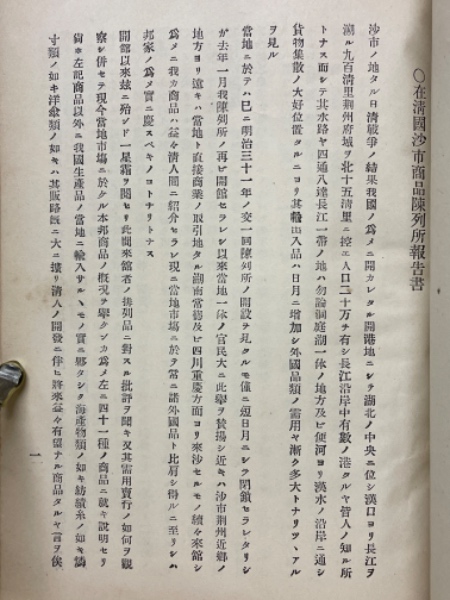 〇在清國沙市商品陳列所報告書
沙市ノ地タル日清戰爭ノ結果我國ノ爲メニ開カレタル開港地ニシテ湖北ノ中央ニ位シ漢口ヨリ長江ヲ
溯ル九百清里荆州府城ヲ北十五清里ニ控エ人口二十万チ有シ長江沿岸中有數ノ港タルヤ智人ノ知ル所
トナス而シテ其水路ヤ四通八達長江一帶ノ地ハ勿論洞庭湖一休ノ地方及ヒ便河ヨリ漢水ノ沿岸ニ通シ
貨物集散ノ大好位置タルニヨリ其輸出入品ハ日月ニ增加シ外國品類ノ需用ヤ漸ク多大トナリツヽアル
ヲ見ル
當地ニ於テハ巳ニ明治三十一年ノ交一回陳列所ノ開設ヲ見タルモ僅ニ短日月ニシテ閉鎖セラレタリシ
カ去年一月我陳列所ノ再ヒ開館セラレシ以來當地一休ノ官民大ニ此擧ヲ賛揚シ近キハ沙市荆州近鄕ノ
地方ヨリ遠キハ當地ト直接商業ノ取引地タル湖南常德及ヒ四川重慶方面ヨリ來沙セルモノ續々來館シ
爲メニ我カ商品ハ益々清人間ニ紹介セラレ現ニ當地市塲ニ於テ常ニ諸外國品ト比肩シ得ルニ至リシハ
邦家ノ爲メ實ニ慶スベキノコトナリトナス
開館以來玆ニ殆ンド一星霜ヲ閲セリ此間來館者ノ排列品ニ對スル批評ヲ聞キ又其需用賣行ノ如何ヲ觀
察シ併セテ現今當地市塲ニ於ケル本邦商品ノ概况ヲ擧ケンカ爲メ左ニ四十一種ノ商品ニ就キ説明セリ
尙ホ左記商品以外ニ我國生產品ノ當地ニ輸入サルヽモノ實ニ夥タシク海產物類ノ如キ紡績糸ノ如キ燐
寸類ノ如キ洋傘類ノ如キハ其販路既ニ大ニ擴リ清人ノ開發ニ伴ヒ將來益々有望ナル商品タルヤ言ヲ俟
一